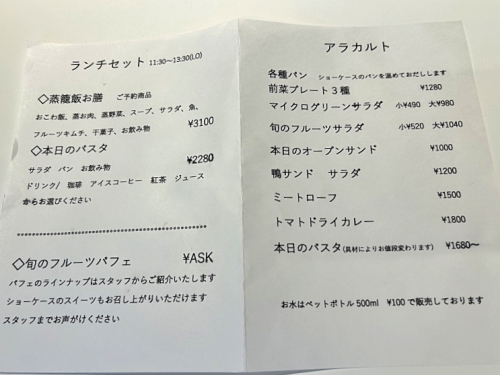 ランチセット 11:30~13:30(LO)
◇蒸籠飯お膳 ご予約商品
おこわ飯、蒸お肉、蒸野菜、スープ、サラダ、魚、
フルーツキムチ、干菓子、お飲み物 ¥3100
◇本日のパスタ ¥2280
サラダ パン お飲み物
ドリンク/ 珈琲 アイスコーヒー 紅茶 ジュース
からお選びください
◇旬のフルーツパフェ ¥ASK
パフェのラインナップはスタッフからご紹介いたします
ショーケースのスイーツもお召し上がりいただけます
スタッフまでお声がけください
アラカルト
各種パン ショーケースのパンを温めておだしします
前菜プレート3種 ¥1280
マイクログリーンサラダ 小¥490 大¥980
旬のフルーツサラダ 小¥520 大¥1040
本日のオープンサンド ¥1000
鴨サンド サラダ ¥1200
ミートローフ ¥1500
トマトドライカレー ¥1800
本日のパスタ(具材によりお値段変わります) ¥1680~
お水はペットボトル500ml ¥100で販売しております